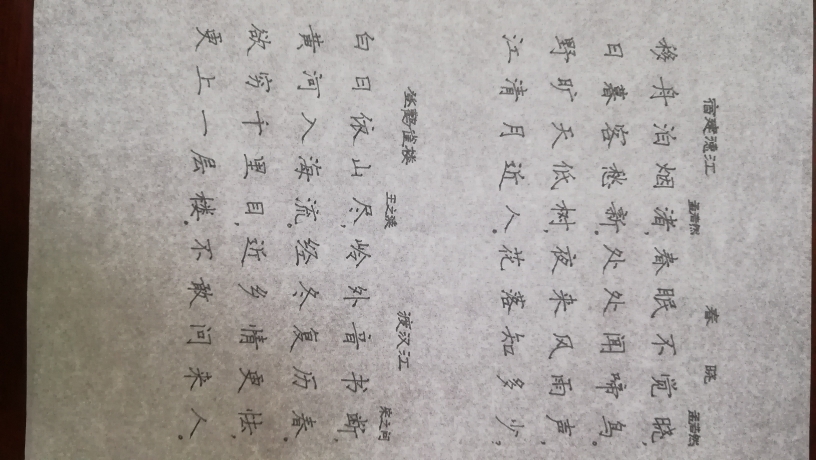 宿建德江
孟浩然
移舟泊烟渚,
日暮客愁新。
野旷天低树,
江清月近人。
春晓
孟浩然
春眠不觉晓,
处处闻啼鸟。
夜来风雨声,
花落知多少?
登鹳雀楼
王之涣
白日依山尽,
黄河入海流。
欲穷千里目,
更上一层楼。
渡汉江
宋之问
岭外音书断,
经冬复历春。
近乡情更怯,
不敢问来人。